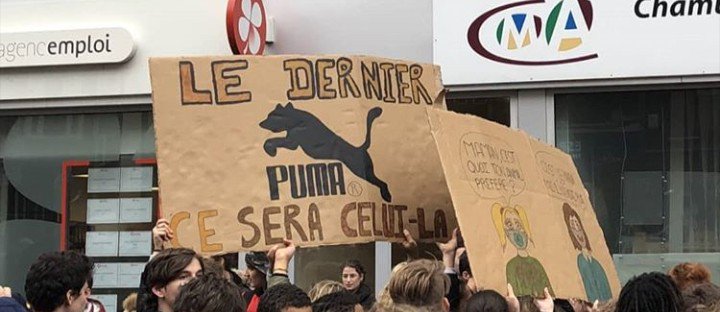 agencemploi
CMA
Cham
LE DERNIER
PUMA®
CE SERA CELUI-LA
MAMAN C'EST
QUOI TON ANIMAL
PRÉFÉRÉ ?